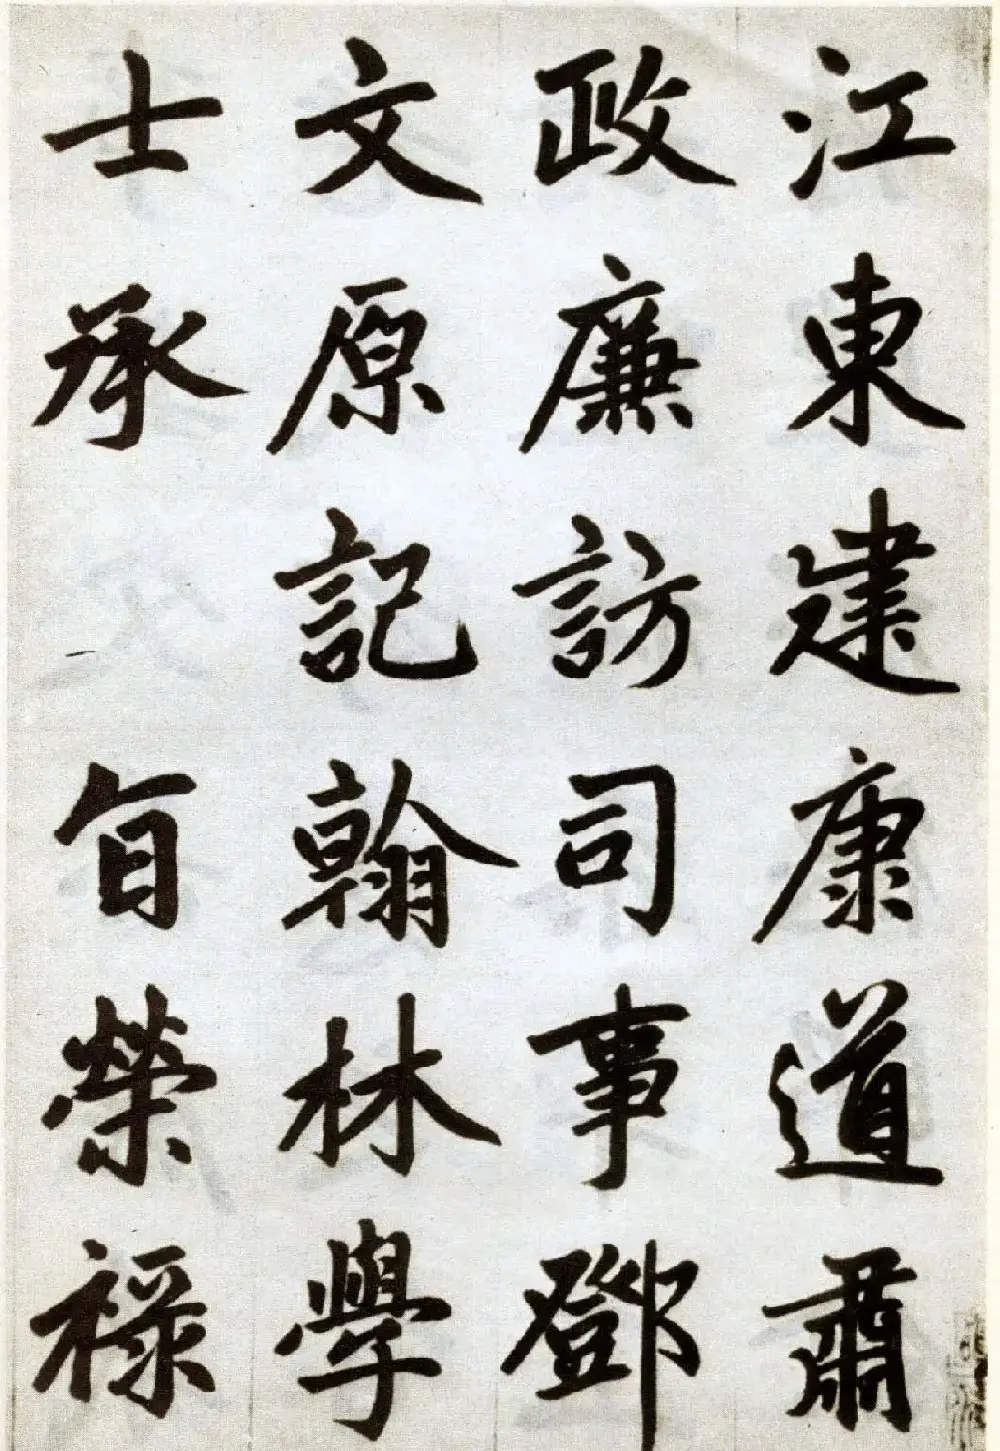 江東建康道肅
政廉訪司事鄧
文原記翰林學
士承㫖榮禄